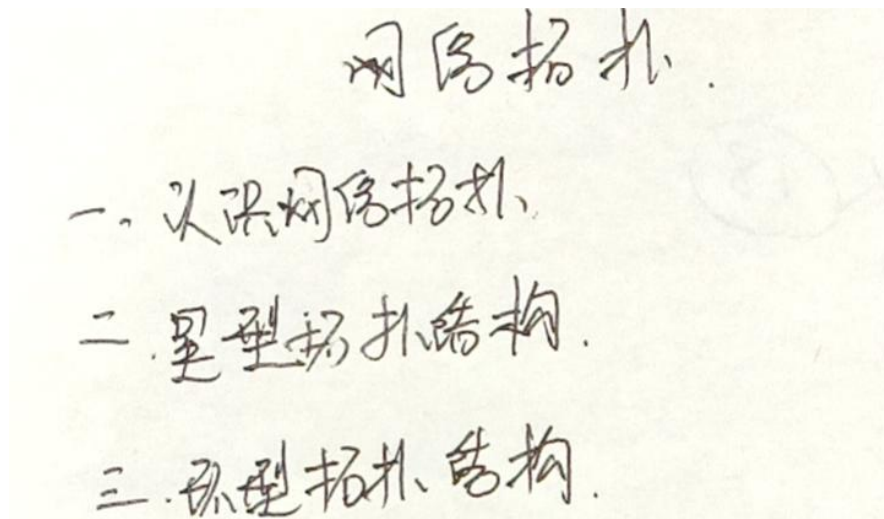 网络拓扑.
一、认识网络拓扑、
二.星型拓扑结构.
三.环型拓扑结构.